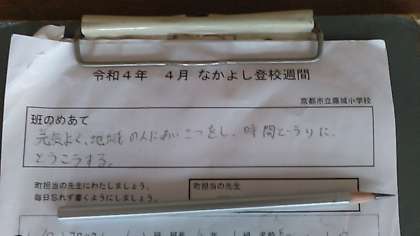 令和４年　４月 なかよし登校週間
京都市立藤城小学校
班のめあて
元気よく、地域の人にあいさつをし、時間どうりに、
とうこうする。
町担当の先生にわたしましょう。
毎日忘れず書くようにしましょう。
町担当の先生